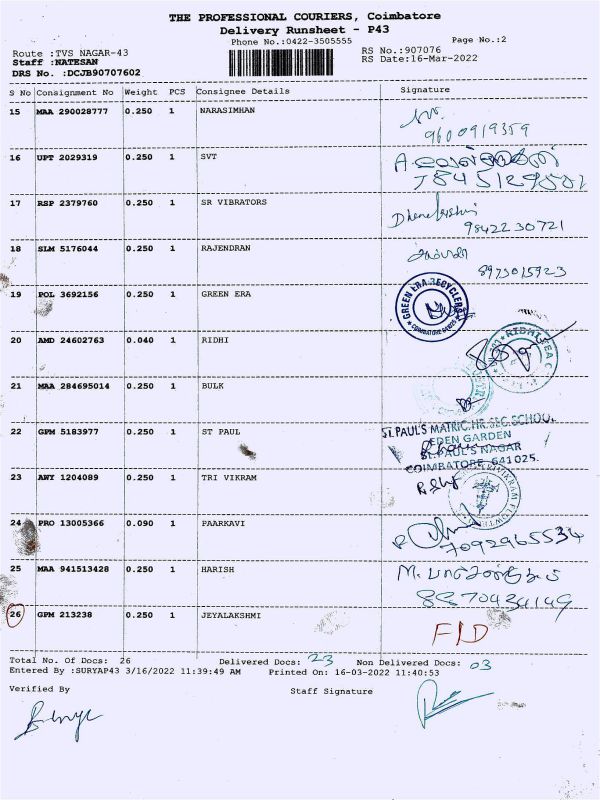 THE PROFESSIONAL COURIERS, Coimbatore
Delivery Runsheet - P43
Phone No.:0422-3505555 Page No.:2
Route :TVS NAGAR-43 RS No.:907076
Staff :NATESAN RS Date:16-Mar-2022
DRS No. :DCJB90707602
S No Consignment No Weight PCS Consignee Details Signature
15 MAA 290028777 0.250 1 NARASIMHAN
9600919359
16 UPT 2029319 0.250 1 SVT
17 RSP 2379760 0.250 1 SR VIBRATORS
9842230721
18 SLM 5176044 0.250 1 RAJENDRAN
8973015923
19 POL 3692156 0.250 1 GREEN ERA GREEN ERA RECYCLERS
20 AMD 24602763 0.040 1 RIDHI
21 MAA 284695014 0.250 1 BULK
22 GPM 5183977 0.250 1 ST PAUL ST.PAUL'S MATRIC.HR.SEC.SCHOOL
EDEN GARDEN
ST.PAUL'S NAGAR
COIMBATORE 641025.
23 AWY 1204089 0.250 1 TRI VIKRAM
24 PRO 13005366 0.090 1 PAARKAVI
7092965534
25 MAA 941513428 0.250 1 HARISH
8870434149
26 GPM 213238 0.250 1 JEYALAKSHMI
F/D
Total No. Of Docs: 26 Delivered Docs: 23 Non Delivered Docs: 03
Entered By :SURYAP43 3/16/2022 11:39:49 AM Printed On: 16-03-2022 11:40:53
Verified By Staff Signature